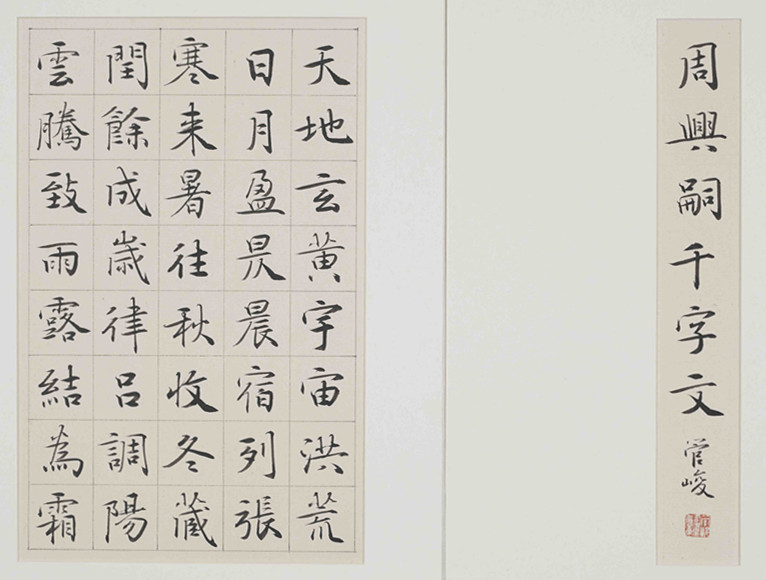 周興嗣千字文
管峻
天地玄黄宇宙洪荒
日月盈昃晨宿列張
寒来暑往秋收冬藏
閏餘成歲律吕調陽
雲騰致雨露結為霜